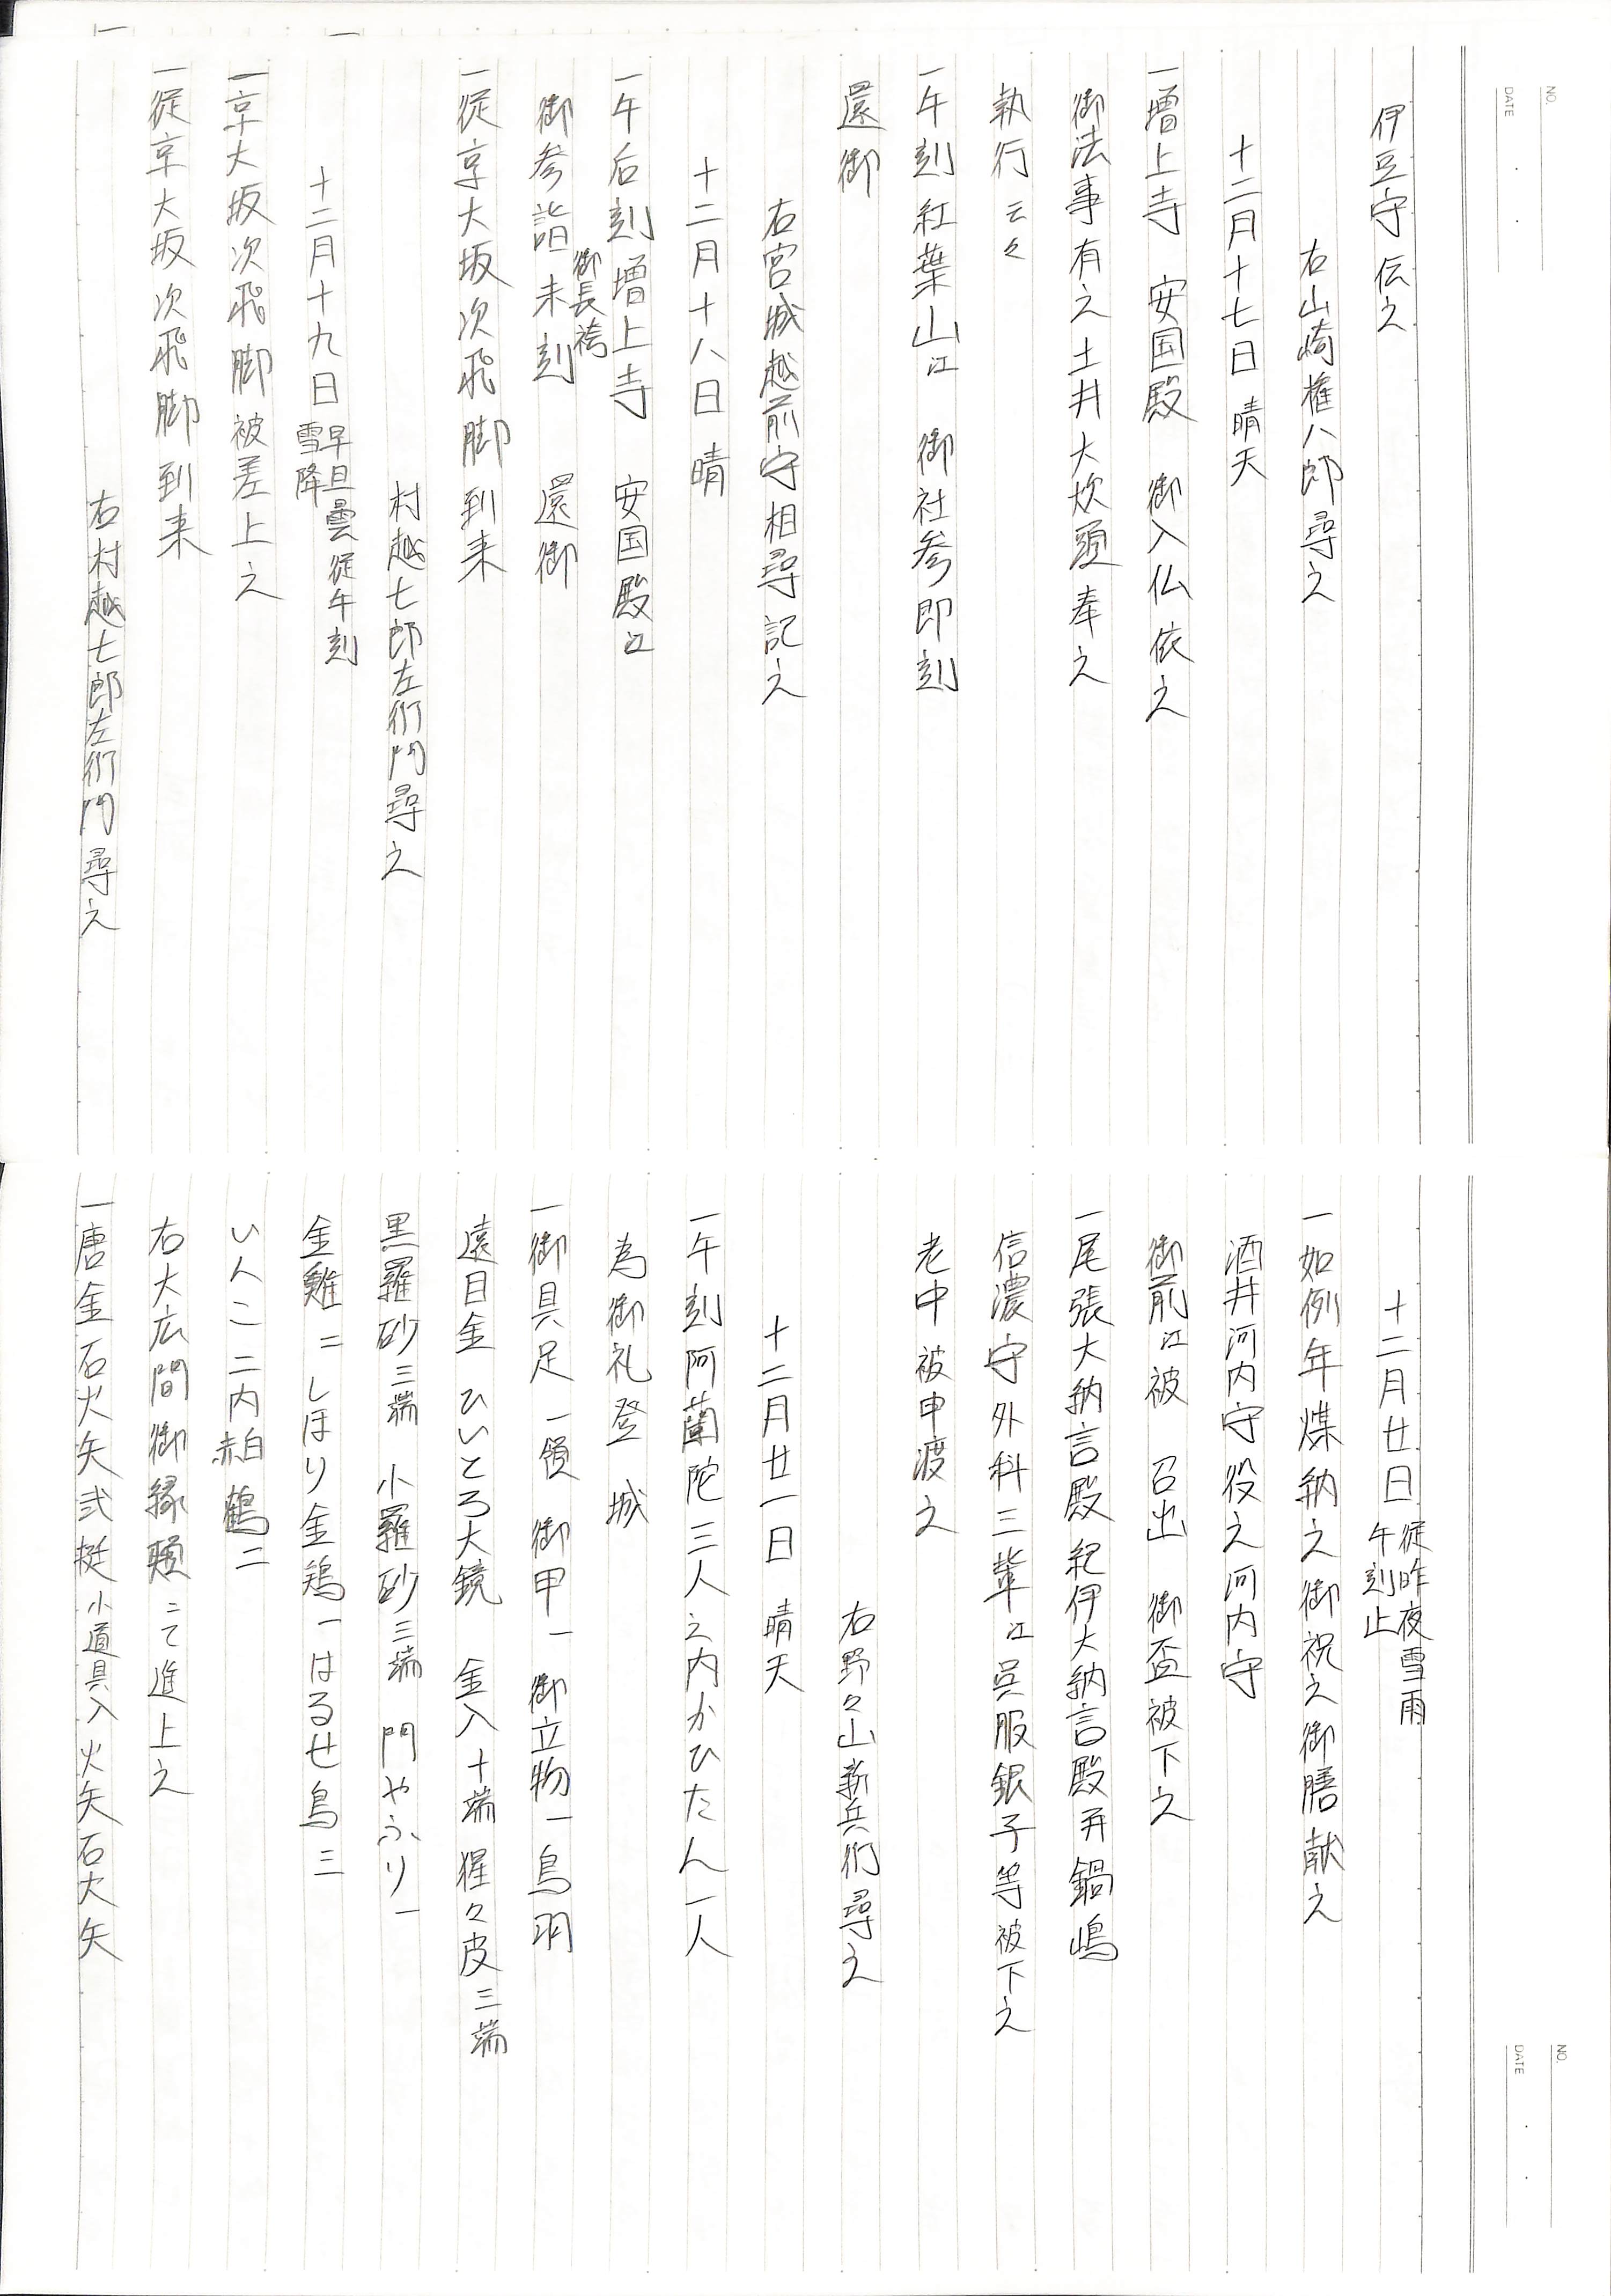 NO.
DATE
伊豆守伝之
右山崎権八郎尋之
十二月十七日 晴天
一増上寺 安国殿 御入仏依之
御法事有之土井大炊頭奉之
執行云々
一午刻紅葉山江 御社参即刻
還御
右宮城越前守相尋記之
十二月十八日 晴
一午后刻増上寺 安国殿江
御長袴
御参詣未刻 還御
一従京大坂次飛脚到来
村越七郎左衛門尋之
十二月十九日 早旦曇従午刻
雪降
一京大坂次飛脚被差上之
一従京大坂次飛脚到来
右村越七郎左衛門尋之
NO.
DATE
十二月廿日 従昨夜雪雨
午刻止
一如例年煤納之御祝之御膳献之
酒井河内守役之河内守
御前江被 召出 御盃被下之
一尾張大納言殿紀伊大納言殿并鍋嶋
信濃守外科三輩江呉服銀子等被下之
老中被申渡之
右野々山新兵衛尋之
十二月廿一日 晴天
一午刻阿蘭陀三人之内かひたん一人
為御礼登城
一御具足一領 御甲一 御立物一鳥羽
遠目金 ひいとろ大鏡 金入十端 猩々皮三端
黒羅砂三端 小羅砂三端 門やふり一
金雞二 しほり金鶏一はるせ鳥三
いんこ二内赤白 鶴二
右大広間御縁頬ニて進上之
一唐金石火矢弐挺小道具入火矢石大矢